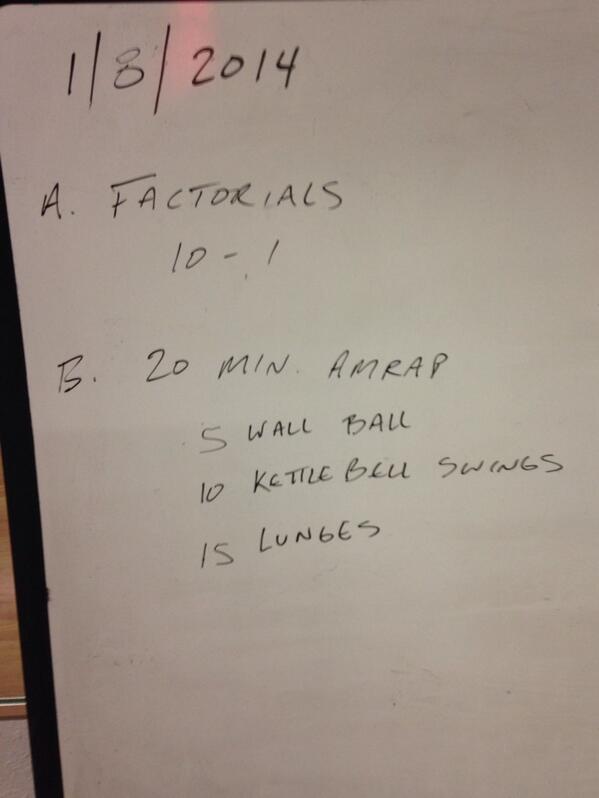 1/8/2014
A. FACTORIALS
10 - 1
B. 20 MIN. AMRAP
5 WALL BALL
10 KETTLE BELL SWINGS
15 LUNGES